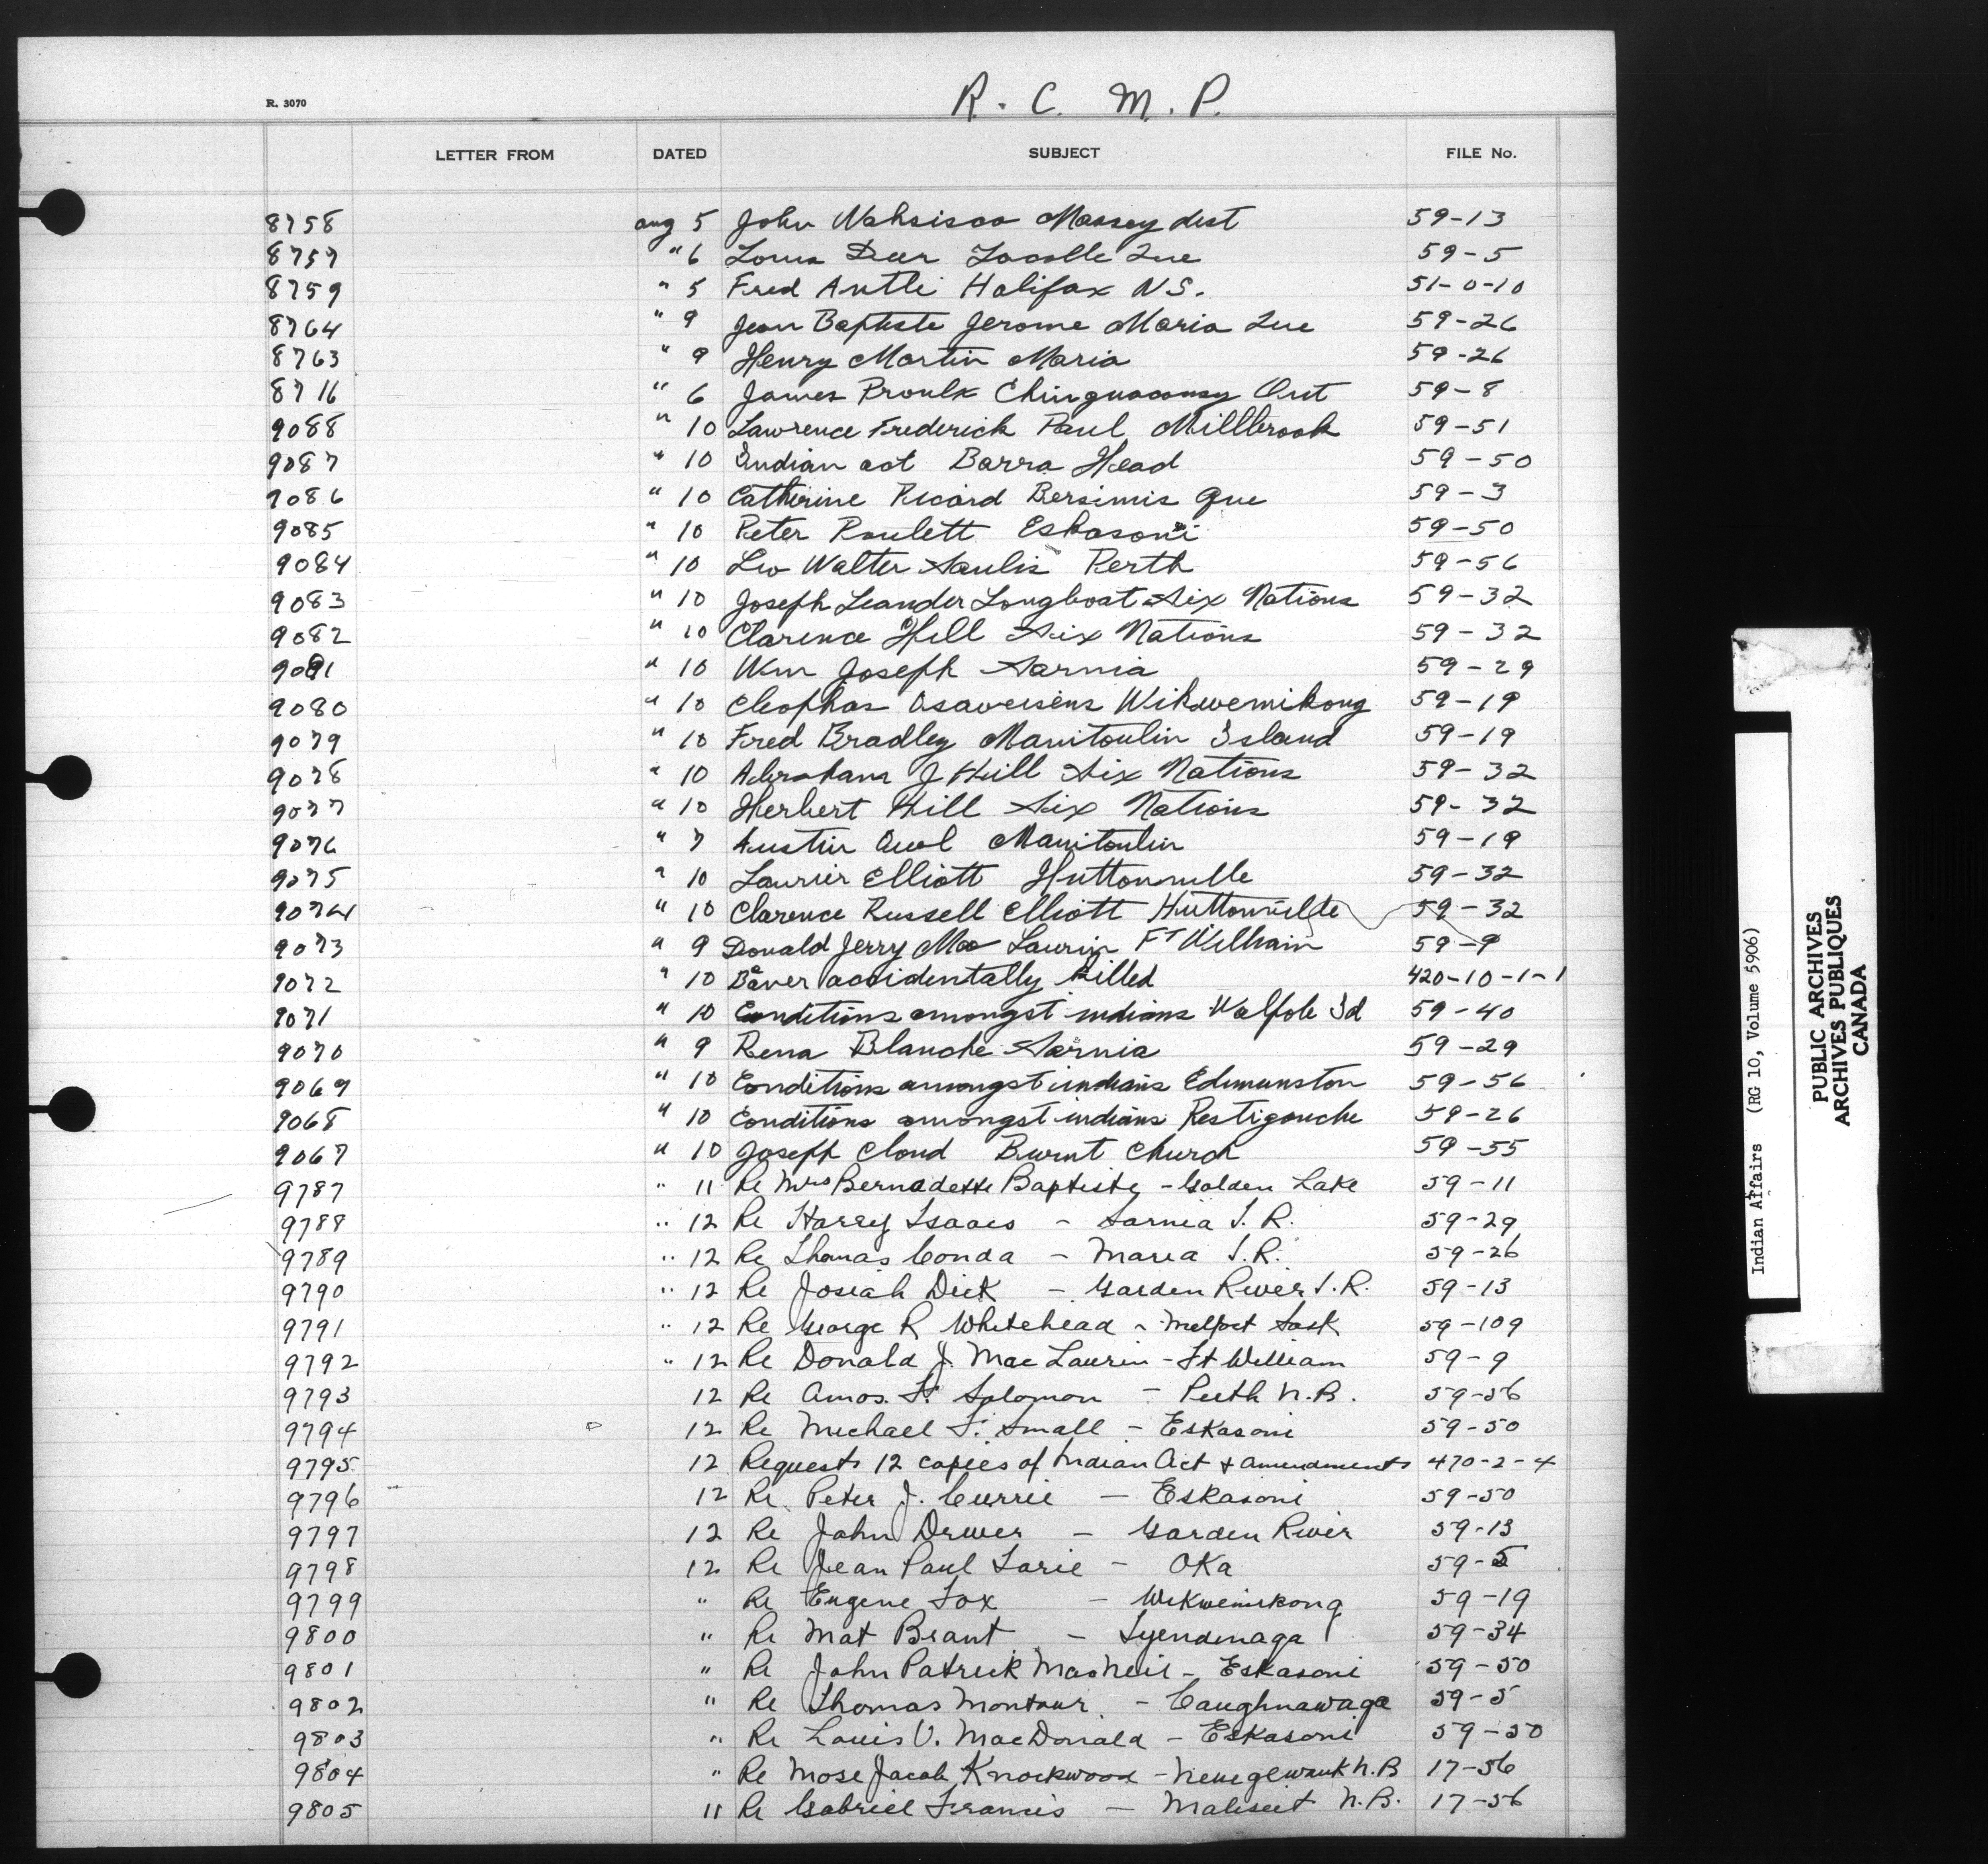 R. 3070
R. C. M. P.
LETTER FROM DATED SUBJECT FILE No.
8758 aug 5 John Wahsisco Massey dist 59-13
8757 " 6 Louis Deer Lacolle Que 59-5
8759 " 5 Fred Antle Halifax N S. 51-0-10
8764 " 9 Jean Baptiste Jerome Maria Que 59-26
8763 " 9 Henry Martin Maria 59-26
8716 " 6 James Proulx Chinguacousy Ont 59-8
9088 " 10 Lawrence Frederick Paul Millbrook 59-51
9087 " 10 Indian act Barra Head 59-50
9086 " 10 Catherine Picard Bersimis Que 59-3
9085 " 10 Peter Paulett Eskasoni 59-50
9084 " 10 Leo Walter Saulis Perth 59-56
9083 " 10 Joseph Leander Longboat Six Nations 59-32
9082 " 10 Clarence Hill Six Nations 59-32
9081 " 10 Wm Joseph Sarnia 59-29
9080 " 10 Cleophas Wikwemikong 59-19
9079 " 10 Fred Bradley Manitoulin Island 59-19
9078 " 10 Abraham J Hill Six Nations 59-32
9077 " 10 Herbert Hill Six Nations 59-32
9076 " 7 Austin Owl Manitoulin 59-19
9075 " 10 Laurier Elliott Huttonville 59-32
9074 " 10 Clarence Russell Elliott Huttonville 59-32
9073 " 9 Donald Jerry Mac Laurin Ft William 59-9
9072 " 10 Beaver accidentally killed 420-10-1-1
9071 " 10 Conditions amongst indians Walpole Id 59-40
9070 " 9 Rena Blanche Sarnia 59-29
9069 " 10 Conditions amongst indians Edmunston 59-56
9068 " 10 Conditions amongst indians Restigouche 59-26
9067 " 10 Joseph Cloud Burnt Church 59-55
9787 " 11 Re Mrs Bernadette Baptiste - Golden Lake 59-11
9788 " 12 Re Harry Isaacs - Sarnia I. R. 59-29
9789 " 12 Re Thomas Conda - Maria I.R. 59-26
9790 " 12 Re Josiah Dick - Garden River I.R. 59-13
9791 " 12 Re George R Whitehead - Melfort Sask 59-109
9792 " 12 Re Donald J. Mac Laurin - Ft William 59-9
9793 12 Re Amos. F. Solomon - Perth N.B. 59-56
9794 12 Re Michael F. Small - Eskasoni 59-50
9795 12 Requests 12 copies of Indian Act & amendments 470-2-4
9796 12 Re Peter J. Currie - Eskasoni 59-50
9797 12 Re John Drever - Garden River 59-13
9798 12 Re Jean Paul Larie - Oka 59-5
9799 " Re Eugene Fox - Wikwemikong 59-19
9800 " Re Mat Brant - Tyendinaga 59-34
9801 " Re John Patrick MacNeil - Eskasoni 59-50
9802 " Re Thomas Montour - Caughnawaga 59-5
9803 " Re Louis V. MacDonald - Eskasoni 59-50
9804 " Re Mose Jacob Knockwood - N.B 17-56
9805 11 Re Gabriel Francis - Maliseet N.B. 17-56
Indian Affairs (RG 10, Volume 5906)
PUBLIC ARCHIVES
ARCHIVES PUBLIQUES
CANADA